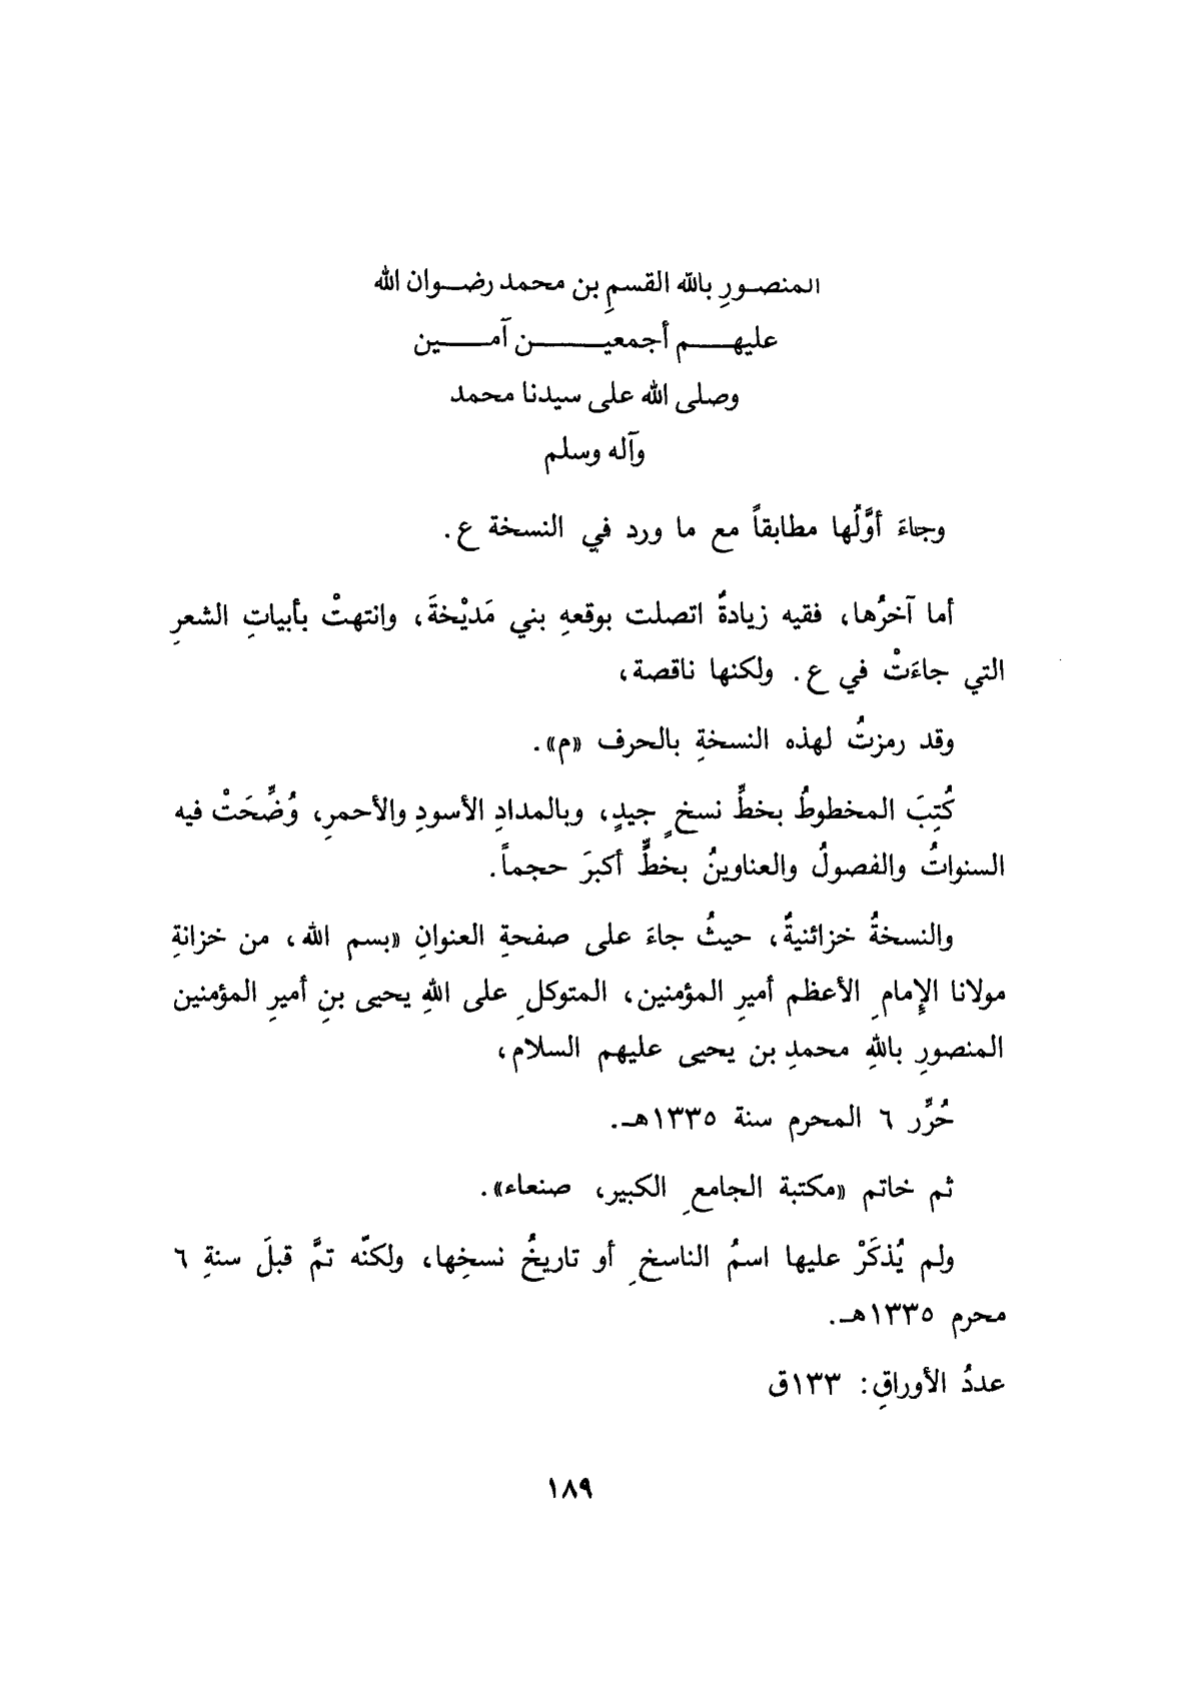 المنصورِ بالله القسمِ بن محمد رضوان الله
عليهم أجمعين آمين
وصلى الله على سيدنا محمد
وآله وسلم
وجاءَ أوَّلُها مطابقاً مع ما ورد في النسخة ع.
أما آخرُها، ففيه زيادةٌ اتصلت بوقعهِ بني مَديْخةَ، وانتهتْ بأبياتِ الشعرِ
التي جاءَتْ في ع. ولكنها ناقصة،
وقد رمزتُ لهذه النسخةِ بالحرف «م».
كُتِبَ المخطوطُ بخطِّ نسخٍ جيدٍ، وبالمدادِ الأسودِ والأحمرِ، وُضِّحَتْ فيه
السنواتُ والفصولُ والعناوينُ بخطٍّ أكبرَ حجماً.
والنسخةُ خزائنيةٌ، حيثُ جاءَ على صفحةِ العنوانِ «بسم الله، من خزانةِ
مولانا الإمامِ الأعظم أميرِ المؤمنين، المتوكلِ على اللهِ يحيى بنِ أميرِ المؤمنين
المنصورِ باللهِ محمدِ بن يحيى عليهم السلام،
حُرِّر ٦ المحرم سنة ١٣٣٥هـ.
ثم خاتم «مكتبة الجامعِ الكبير، صنعاء».
ولم يُذكَرْ عليها اسمُ الناسخِ أو تاريخُ نسخِها، ولكنّه تمَّ قبلَ سنةِ ٦
محرم ١٣٣٥هـ.
عددُ الأوراقِ: ١٣٣ق
١٨٩